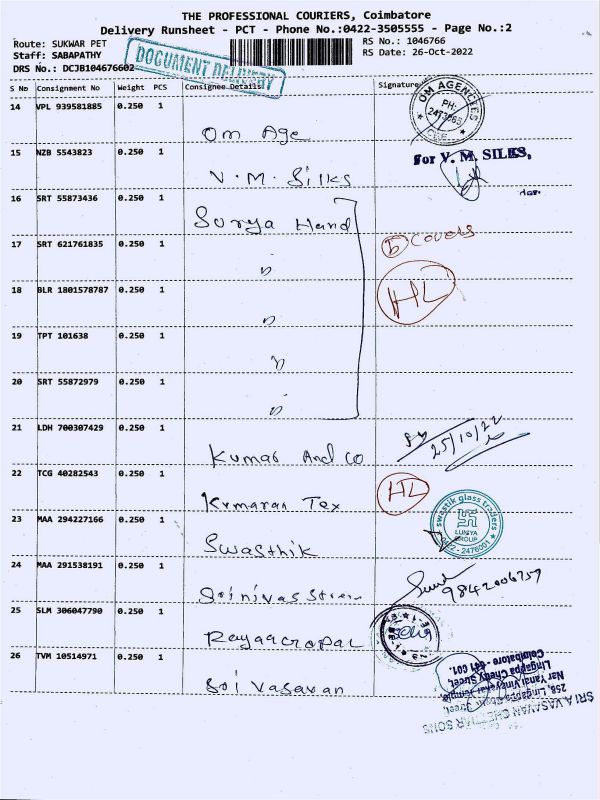 THE PROFESSIONAL COURIERS, Coimbatore
Delivery Runsheet - PCT - Phone No.:0422-3505555 - Page No.:2
Route: SUKWAR PET
RS No.: 1046766
Staff: SABAPATHY
RS Date: 26-Oct-2022
DRS No.: DCJB104676602
DOCUMENT DELIVERY
S No Consignment No Weight PCS Consignee Details Signature
14 VPL 939581885 0.250 1
Om Age
OM AGENCIES
PH:
CBE
15 NZB 5543823 0.250 1
V. M. Silks
for V. M. SILKS,
16 SRT 55873436 0.250 1
Surya Hand
17 SRT 621761835 0.250 1
"
5 Covers
18 BLR 1801578787 0.250 1
"
HL
19 TPT 101638 0.250 1
"
20 SRT 55872979 0.250 1
"
21 LDH 700307429 0.250 1
Kumar And Co
25/10/22
22 TCG 40282543 0.250 1
Kumaran Tex
HL
23 MAA 294227166 0.250 1
Swasthik
swastik glass traders
LUNIYA
GROUP
0422 - 2476091
24 MAA 291538191 0.250 1
Srinivas Stree
9842006757
25 SLM 306047790 0.250 1
26 TVM 10514971 0.250 1
Sri Vasavan
SRI A. VASAVAN CHETTIAR SONS
258, Lingappa Chetty Street,
Nar Yanai Vinayakar Temple,
Lingappa Chetty Street,
Coimbatore - 641 001.